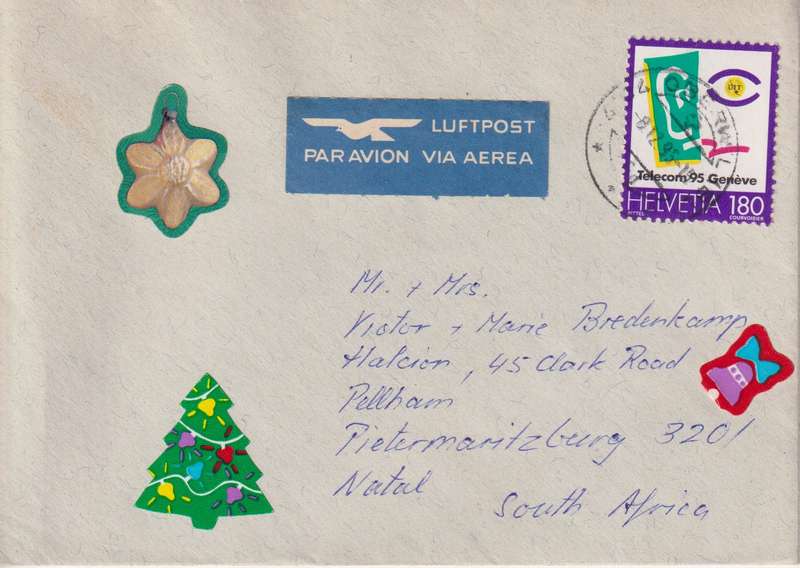 LUFTPOST
PAR AVION VIA AEREA
Telecom 95 Genève
HELVETIA 180
COURVOISIER
Mr. + Mrs.
Victor + Marie Bredenkamp
Halcion, 45 Clark Road
Pellham
Pietermaritzburg 3201
Natal
South Africa